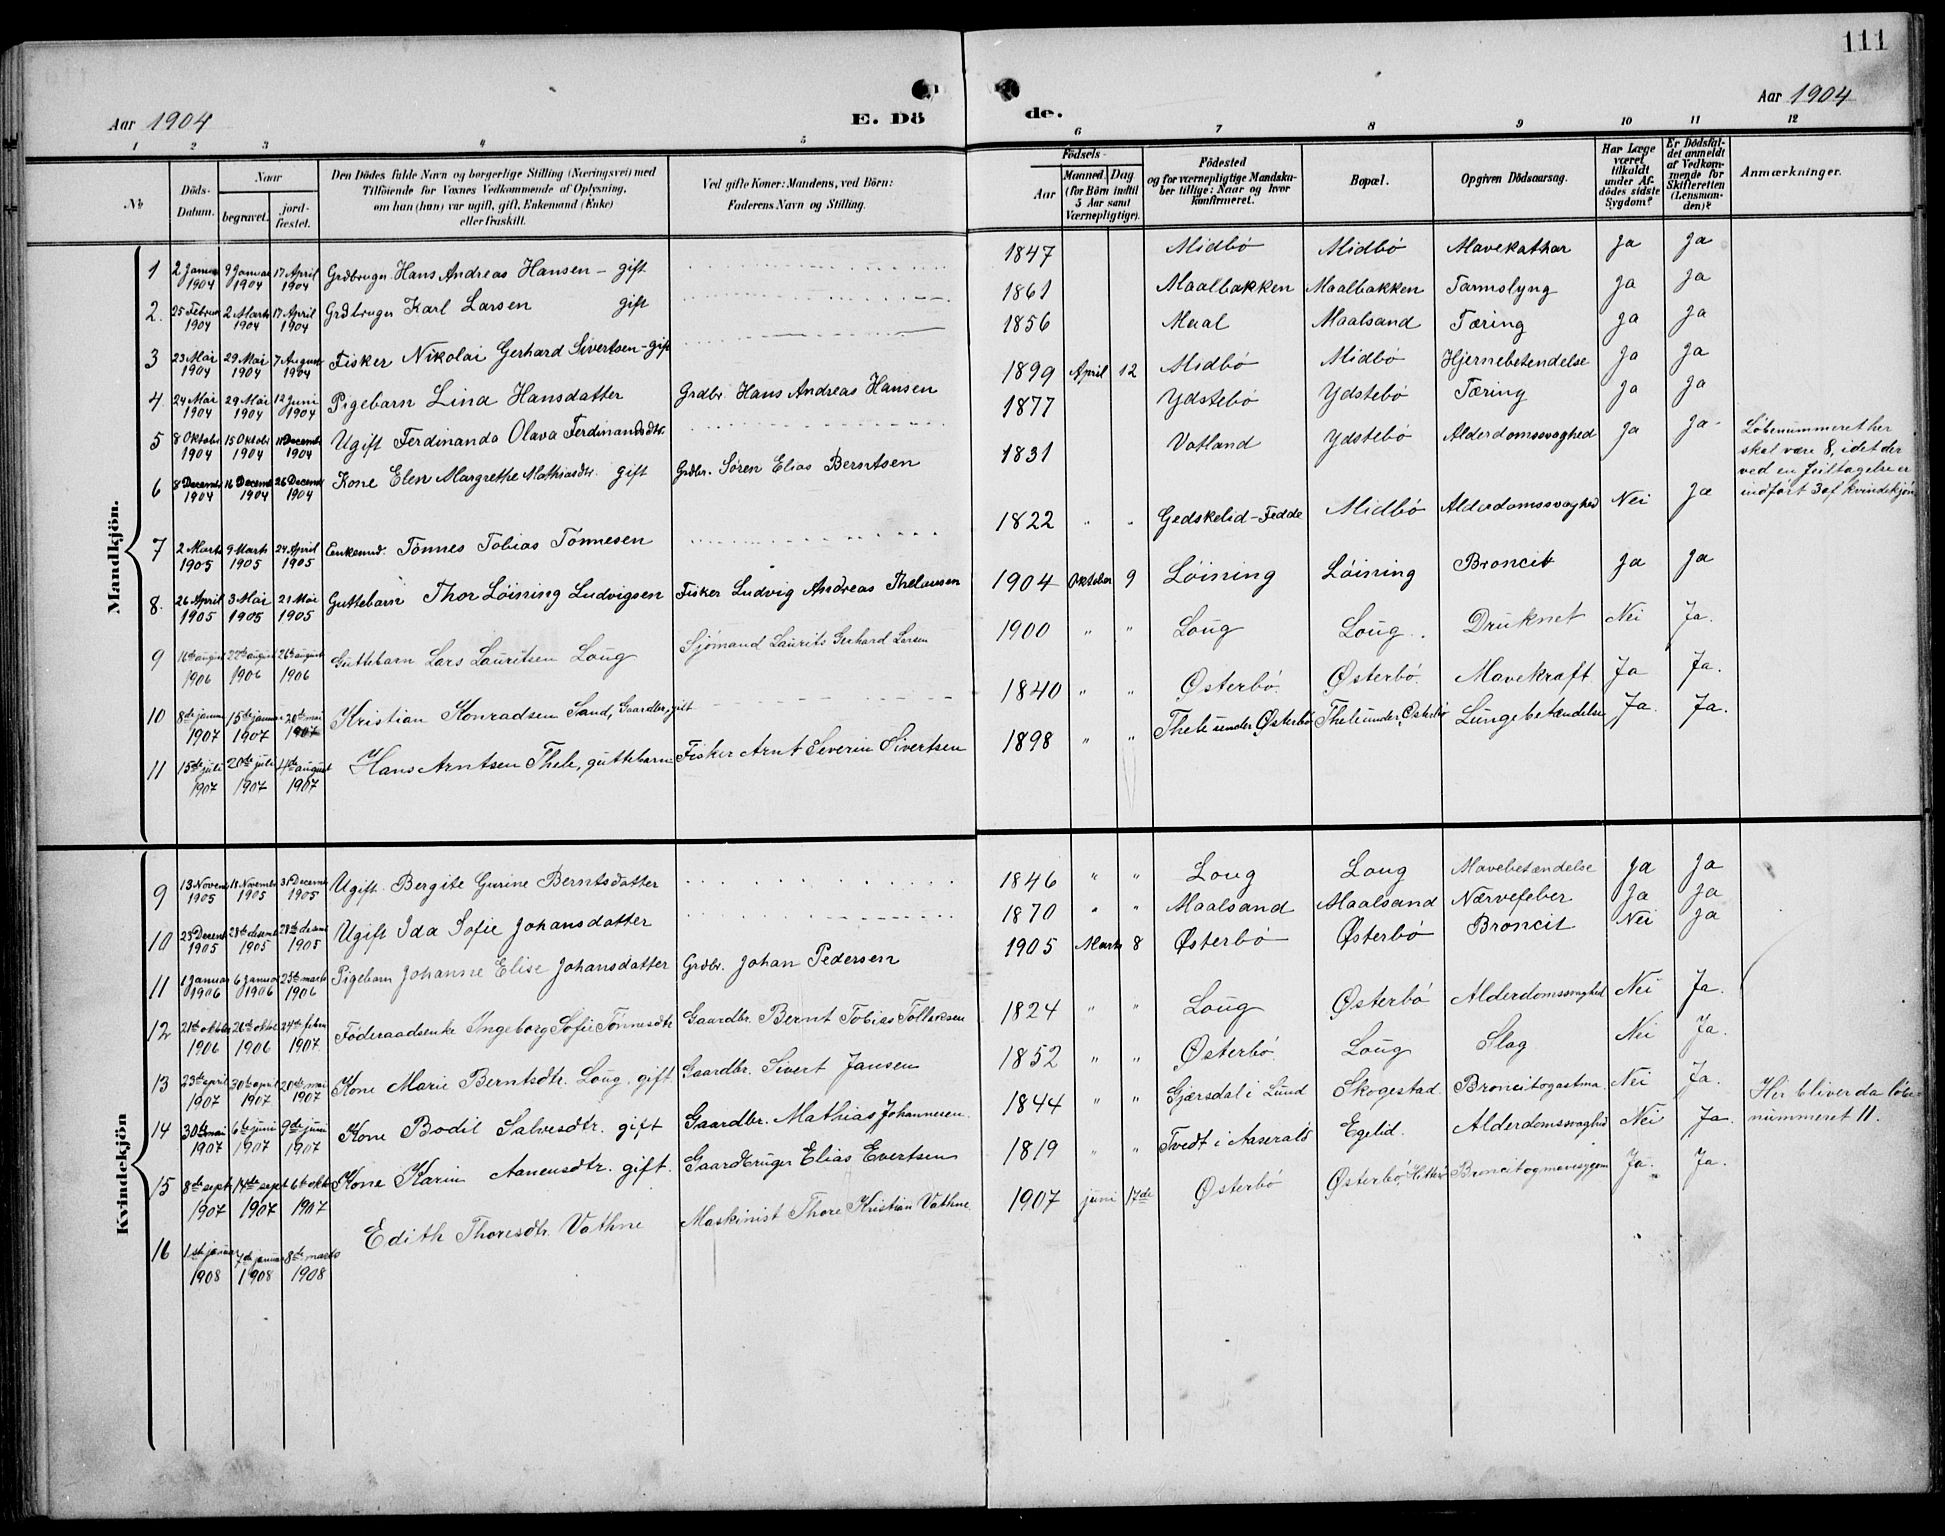 111
Aar 1904
E. Dö
de.
Aar 1904
1 2 3 4 5 6 7 8 9 10 11 12
№
Döds-
Datum.
Naar
begravet.
jord-
fæstet.
Den Dödes fulde Navn og borgerlige Stilling (Næringsvei) med
Tilföiende for Voxnes Vedkommende af Oplysning,
om han (hun) var ugift, gift, Enkemand (Enke)
eller fraskilt.
Ved gifte Koner: Mandens, ved Börn:
Faderens Navn og Stilling.
Födsels-
Aar
Maaned. Dag
(for Börn indtil
5 Aar samt
Værnepligtige).
Födested
og for værnepligtige Mandska-
ber tillige: Naar og hvor
konfirmeret.
Bopæl.
Opgiven Dödsaarsag.
Har Læge
været
tilkaldt
under Af-
dödes sidste
Sygdom?
Er Dödsfal-
det anmeldt
af Vedkom-
mende for
Skifteretten
(Lensman-
den)?
Anmærkninger.
Mandkjön.
1 2 Januar 1904 9 Januar 1904 17 April 1904 Grdbruger Hans Andreas Hansen - gift 1847 Midbö Midbö Mavekathar Ja Ja
2. 25 Februar 1904 2 Marts 1904 17 April 1904 Grdbruger Karl Larsen gift 1861 Maalbakken Maalbakken Tarmslyng Ja Ja
3 23 Mai 1904 29 Mai 1904 7 August 1904 Fisker Nikolai Gerhard Sivertsen - gift 1856 Maal Maalsand Tæring Ja Ja
4. 24 Mai 1904 29 Mai 1904 12 Juni 1904 Pigebarn Lina Hansdatter Grdbr. Hans Andreas Hansen 1899 April 12 Midbö Midbö Hjernebetendelse Ja Ja
5 8 Oktobr 1904 15 Oktobr 1904 11 Decembr 1904 Ugift Ferdinanda Olava Ferdinandsdtr. 1877 Ydstebö Ydstebö Tæring Ja Ja
6 8 Decembr 1904 16 Decembr 1904 26 Decembr 1904 Kone Elen Margrethe Mathiasdtr. gift Grdbr. Sören Elias Berntsen 1831 Vatland Ydstebö Alderdomssvaghed Ja Ja
Löbenummeret her
skal være 8, idet der
ved en Feiltagelse er
indfört 3 af Kvindekjön
7 2 Marts 1905 9 Marts 1905 24 April 1905 Enkemd. Tönnes Tobias Tönnesen 1822 " " Gedskelid - Fedde Midbö Alderdomssvaghed Nei Ja
8. 26 April 1905 3 Mai 1905 21 Mai 1905 Guttebarn Thor Löining Ludvigsen Fisker Ludvig Andreas Thelausen 1904 Oktober 9 Löining Löining Broncit Ja Ja
9 16de august 1906 22de august 1906 26de august 1906 Guttebarn Lars Lauritsen Loug Sjömand Laurits Gerhard Larsen 1900 " " Loug Loug. Druknet Nei Ja.
10 8de januar 1907 15de januar 1907 20de mai 1907 Kristian Konradsen Sand, Gaardbr., gift 1840 " " Østerbö. Østerbö. Mavekræft. Ja Ja.
11 15de juli 1907 20de juli 1907 4de august 1907 Hans Arntsen Thele, guttebarn Fisker Arnt Severin Sivertsen 1898 " " Thele under Østerbö Thele under Østerbö Lungebetændelse Ja. Ja.
Kvindekjön
9 13 Novem 1905 18 November 1905 31 Decembr 1905 Ugift Bergite Gurine Berntsdatter 1846 " " Loug Loug Mavebetændelse Ja Ja
10 23 Decem 1905 28de desem 1905 28de desem 1905 Ugift Ida Sofie Johansdatter 1870 " " Maalsand Maalsand Nærvefeber Ja Ja
11 1 Januar 1906 6 Januar 1906 25de marts 1906 Pigebarn Johanne Elise Johansdatter Grdbr. Johan Pedersen 1905 Marts 8 Østerbö Østerbö Broncit Nei Ja
12 21de oktbr 1906 26de oktbr 1906 24de febru 1907 Föderaadsenke Ingeborg Sofie Tönnesdtr Gaardbr. Bernt Tobias Tollaksen 1824 " " Loug Østerbö Alderdomssvaghed Nei Ja.
13 23de april 1907 30de april 1907 20de mai 1907 Kone Marie Berntsdtr. Loug, gift Gaardbr. Sivert Jansen 1852 " " Østerbö Loug Slag Nei Ja.
14 30te mai 1907 6te juni 1907 9de juni 1907 Kone Bodil Salvesdtr. gift Gaardbr. Mathias Johannesen 1844 " " Gjærsdal i Lund Skogestad Broncit og astma. Nei Ja.
Her bliver da löbe-
nummeret 11.
15 8de sept 1907 14de sept 1907 6te okt 1907 Kone Karin Aanensdtr. gift. Gaardbruger Elias Evertsen 1819 " " Tvedt i Aaserald Egelid. Alderdomssvaghed Nei Ja.
16 1ste januar 1908 7de januar 1908 8de marts 1908 Edith Thoresdtr. Vathne Maskinist Thore Kristian Vathne 1907 juni 17de Østerbö Østerbö, Hitterö Broncit og mavesygem Ja. Ja.